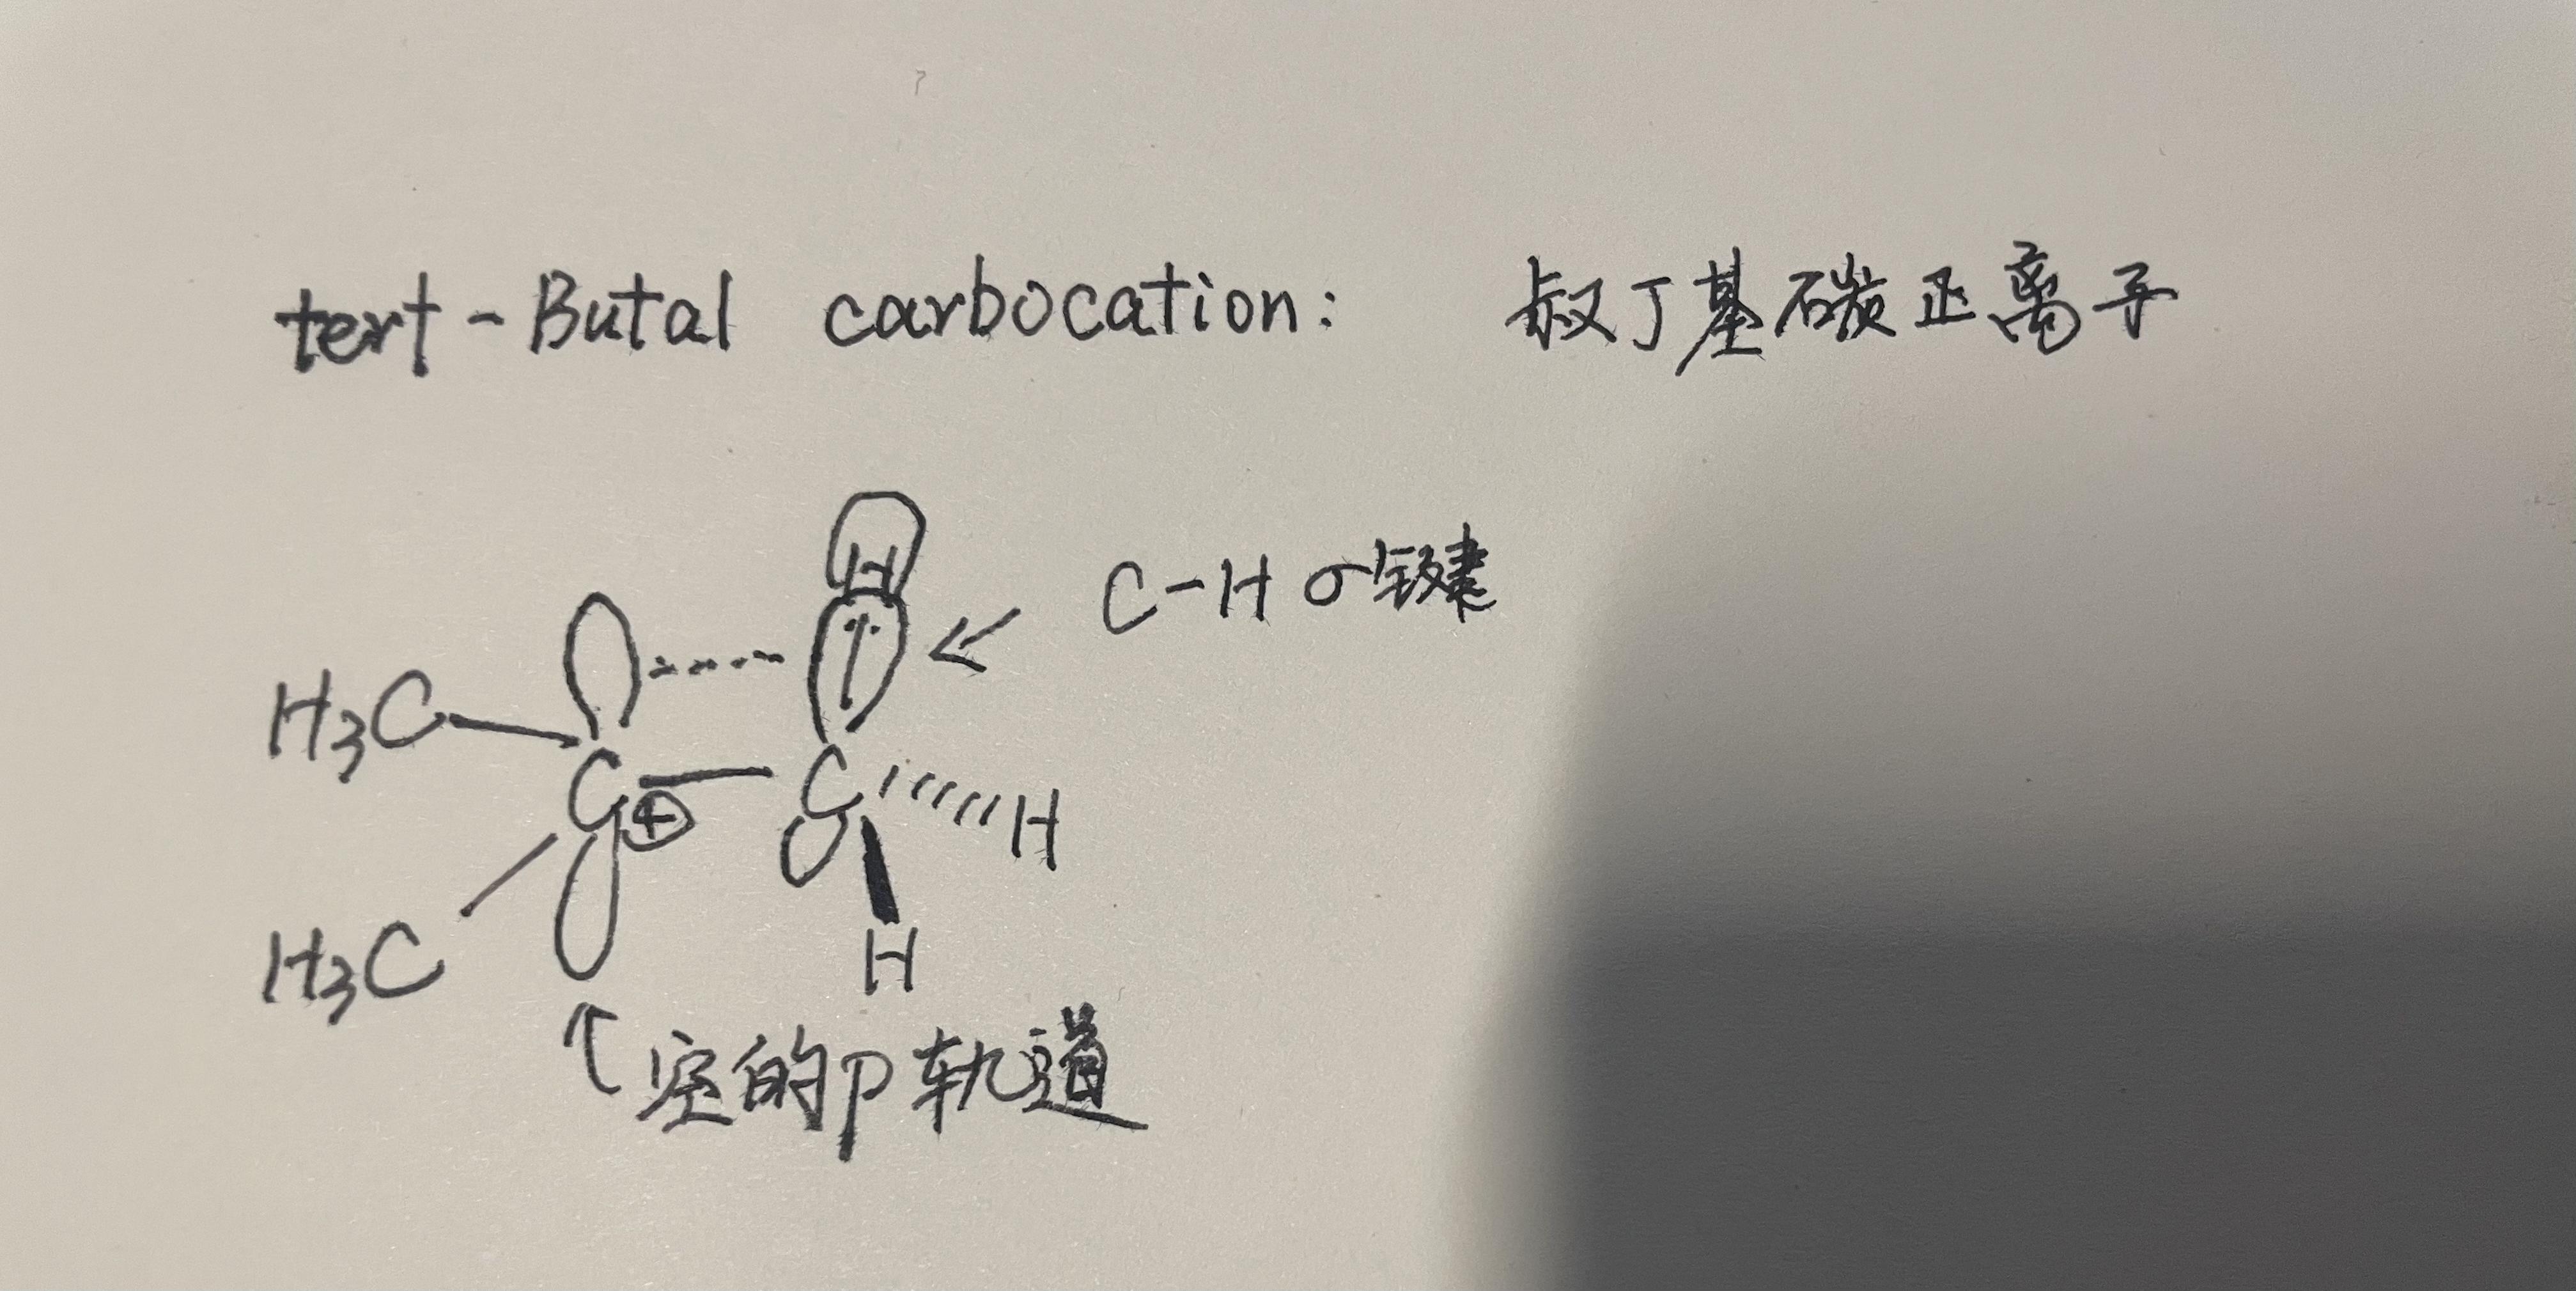 tert-Butal carbocation: 叔丁基碳正离子
H
C-H σ键
H₃C
C ⊕ C H
H₃C
H
空的p轨道